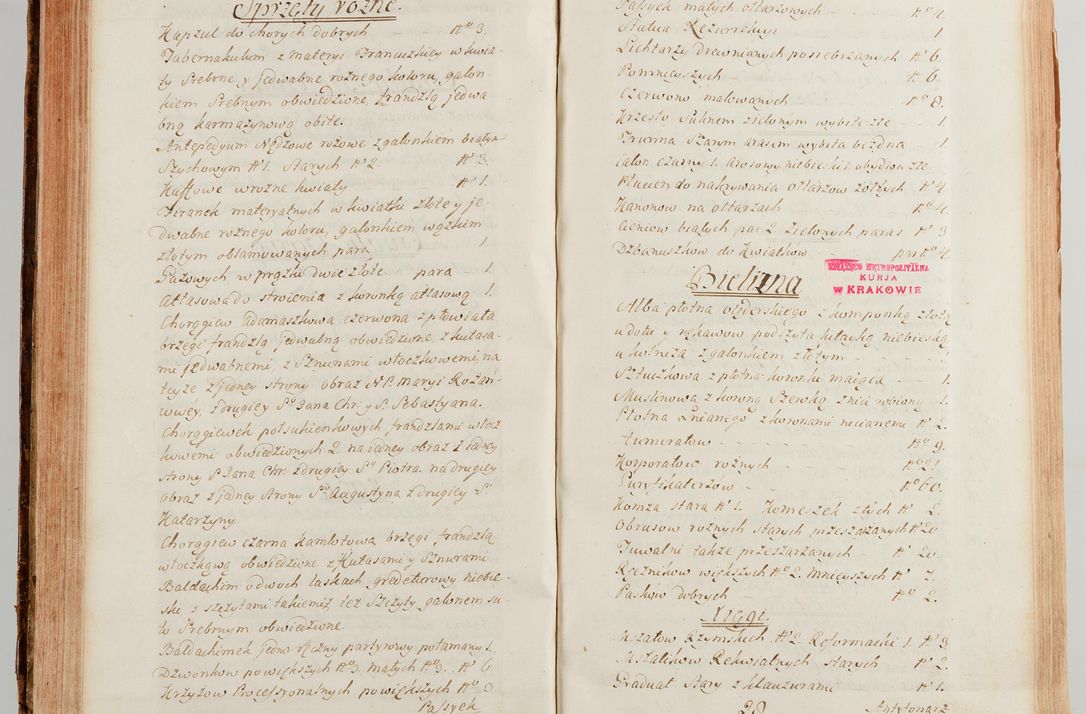 Sprzęty rozne.
Kapzul do chorych dobrych - - N° 3.
Tabernakulum z materyi Francuzkiey w kwia-
ty srebrne y jedwabne rożnego koloru, galon-
kiem srebnym obwiedzione, frandzlą jedwa
bną karmazynową obite.
Antepedyum Nądzowe rożowe z galonkiem białym
Szychowym N° 1. Starych N° 2. N° 3.
Haftowe w rozne kwiaty N° 1.
Firanek materyalnych w kwiatki złote y je-
dwabne rożnego koloru, galonkiem wązkim
złotym obłamowanych para 1.
Gazowych w prążki dwie złote para 1.
Atłasowa do stroienia z koronką atłasową 1.
Chorągiew adamaszkowa czerwona z płowiała
brzegi frandzlą jedwabną obwiedzione, z kutasa-
mi jedwabnemi, z sznurami włoczkowemi, na
teyże z jedney strony obraz N.P. Maryi Rożań-
cowey, z drugiey S° Jana Chr: y S. Sebastyana.
Chorągiewek połsukienkowych, frandzlami włocz
kowemi obwiedzionych 2. na jedney obraz z jedney
strony S. Jana Chr. z drugiey S° Piotra. na drugiey
obraz z jedney strony S° Augustyna z drugiey S°
Katarzyny.
Chorągiew czarna kamlotowa brzegi frandzlą
włoczkową obwiedzione z Kutasami y Sznurami.
Baldachim o dwoch laskach gredeterowy niebie-
ski z szczytami takiemiż też szczyty galonem su-
to srebrnym obwiedzione.
Baldachimek jedno ręczny partyrowy połamany 1.
Dzwonkow powiększych N° 3. małych N° 3. N° 6.
Krzyżow Processyonalnych po większych N° 3
Passyek
Passyek małych ołtarzowych - N° 4.
Statua Rezurekcyi 1
Lichtarzy drewnianych posrebrzanych N° 6.
Pomnieyszych - N° 6.
Czerwono malowanych - N° 8.
Krzesło Suknem zielonym wybite złe - 1
Trunna Szarym arasem wybita bez dna 1
Całon czarny 1. Arasowy niebieski 1. obydwa złe
Płucien do nakrywania ołtarzow zołtych N° 4
Kanonow na ołtarzach N° 4.
Cieniow białych par 2. zielonych para 1 N° 3
Dzbanuszkow do Kwiatkow - par N° 4.
KSIĄŻĘCO METROPOLITALNA
KURJA
W KRAKOWIE
Bielizna
Alba płotna olęderskiego z komponką złotą
u dołu y rękawow podszyta kitayką niebieską
u kołnirza z galonkiem złotym
Sztuczkowa z płotna koronki maiąca - 1.
Muslinowa z koroną Szewką z nici robioną 1.
Płotna Lnianego z koronami nicianemi N° 2.
Humerałow - N° 9.
Korporałow rożnych
Puryfikaterzow - N° 60.
Komza stara N° 1. Komeszek złych N° 2.
Obrusow rożnych starych przeszarzanych N° 20
Tuwalni także przeszarzanych - N° 20.
Ręcznikow większych N° 2. Mnieyszych N° 7.
Paskow dobrych N° 2.
Xięgi.
Mszałow Rzymskich N° 2. Reformacki 1. N° 3
Mszalikow Rekwialnych starych N° 2.
Graduał Stary z klauzurami N° 1.
28 Antyfonarz